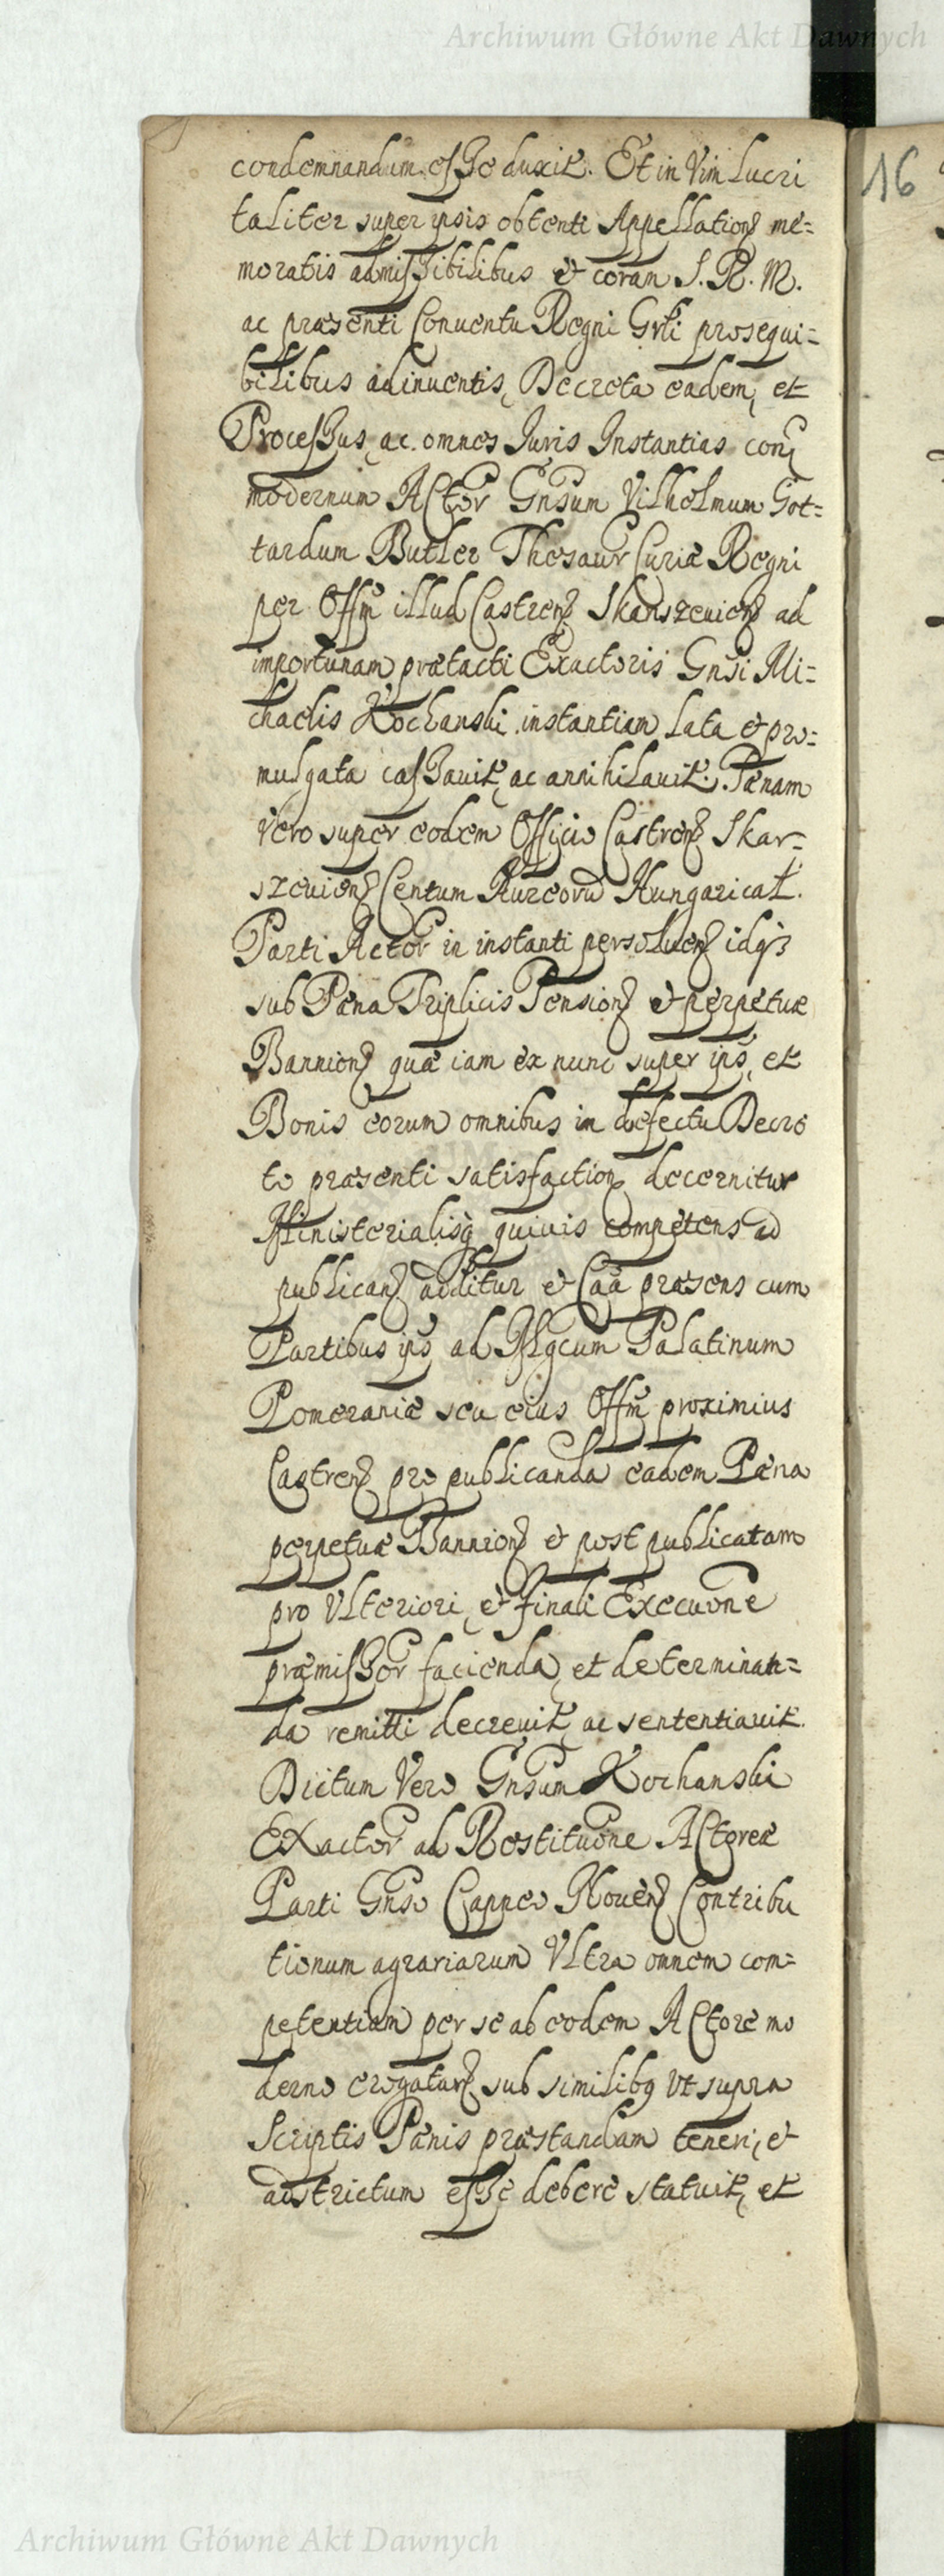 Archiwum Główne Akt Dawnych
16
condemnandum esse duxit. Et in Vim Lucri
taliter super ipsis obtenti Appellation͠ me=
moratis admissibilibus et coram S. R. M.
ac præsenti Conuentu Regni Grłi prosequi=
bilibus adinuentis, Decreta eadem, et
Processus, ac omnes Juris Instantias con͠
modernum Actor Gnsum Vilhelmum Got=
tardum Butler Thesaur Curiæ Regni
per Offm illud Castren͠ Skarszeuien͠ ad
importunam prætacti Exactoris Gnsi Mi=
chaelis Kochanski instantiam lata et pro=
mulgata cassauit, ac annihilauit. Pænam
vero super eodem Officio Castren͠ Skar=
szeuien͠ Centum Aureorũ Hungarical.
Parti Actor in instanti persoluen͠ idq3
sub Pæna Triplicis Pension͠ et perpetuæ
Bannion͠ quæ iam ex nunc super ips, et
Bonis eorum omnibus in defectu Decre
to præsenti satisfaction͠ decernitur
Ministerialisq quiuis competens ad
publican͠ additur et Caa præsens cum
Partibus ips ad Mgcum Palatinum
Pomeraniæ seu eius Offm proximius
Castren͠ pro publicanda eadem Pæna
perpetuæ Bannion͠ et post publicatam
pro Vlteriori, et finali Execuone
præmissor facienda, et determinan=
da remitti decreuit, ac sententiauit.
Dictum Vero Gnsum Kochanski
Exactor ad Restituone Actoreæ
Parti Gnso Capneo Nouen͠ Contribu
tionum agrariarum Vltra omnem com=
petentiam per se ab eodem Actore mo
derno erogatar͠ sub similibq vt supra
Scriptis Pænis præstandam teneri, et
adstrictum esse debere statuit, et
Archiwum Główne Akt Dawnych